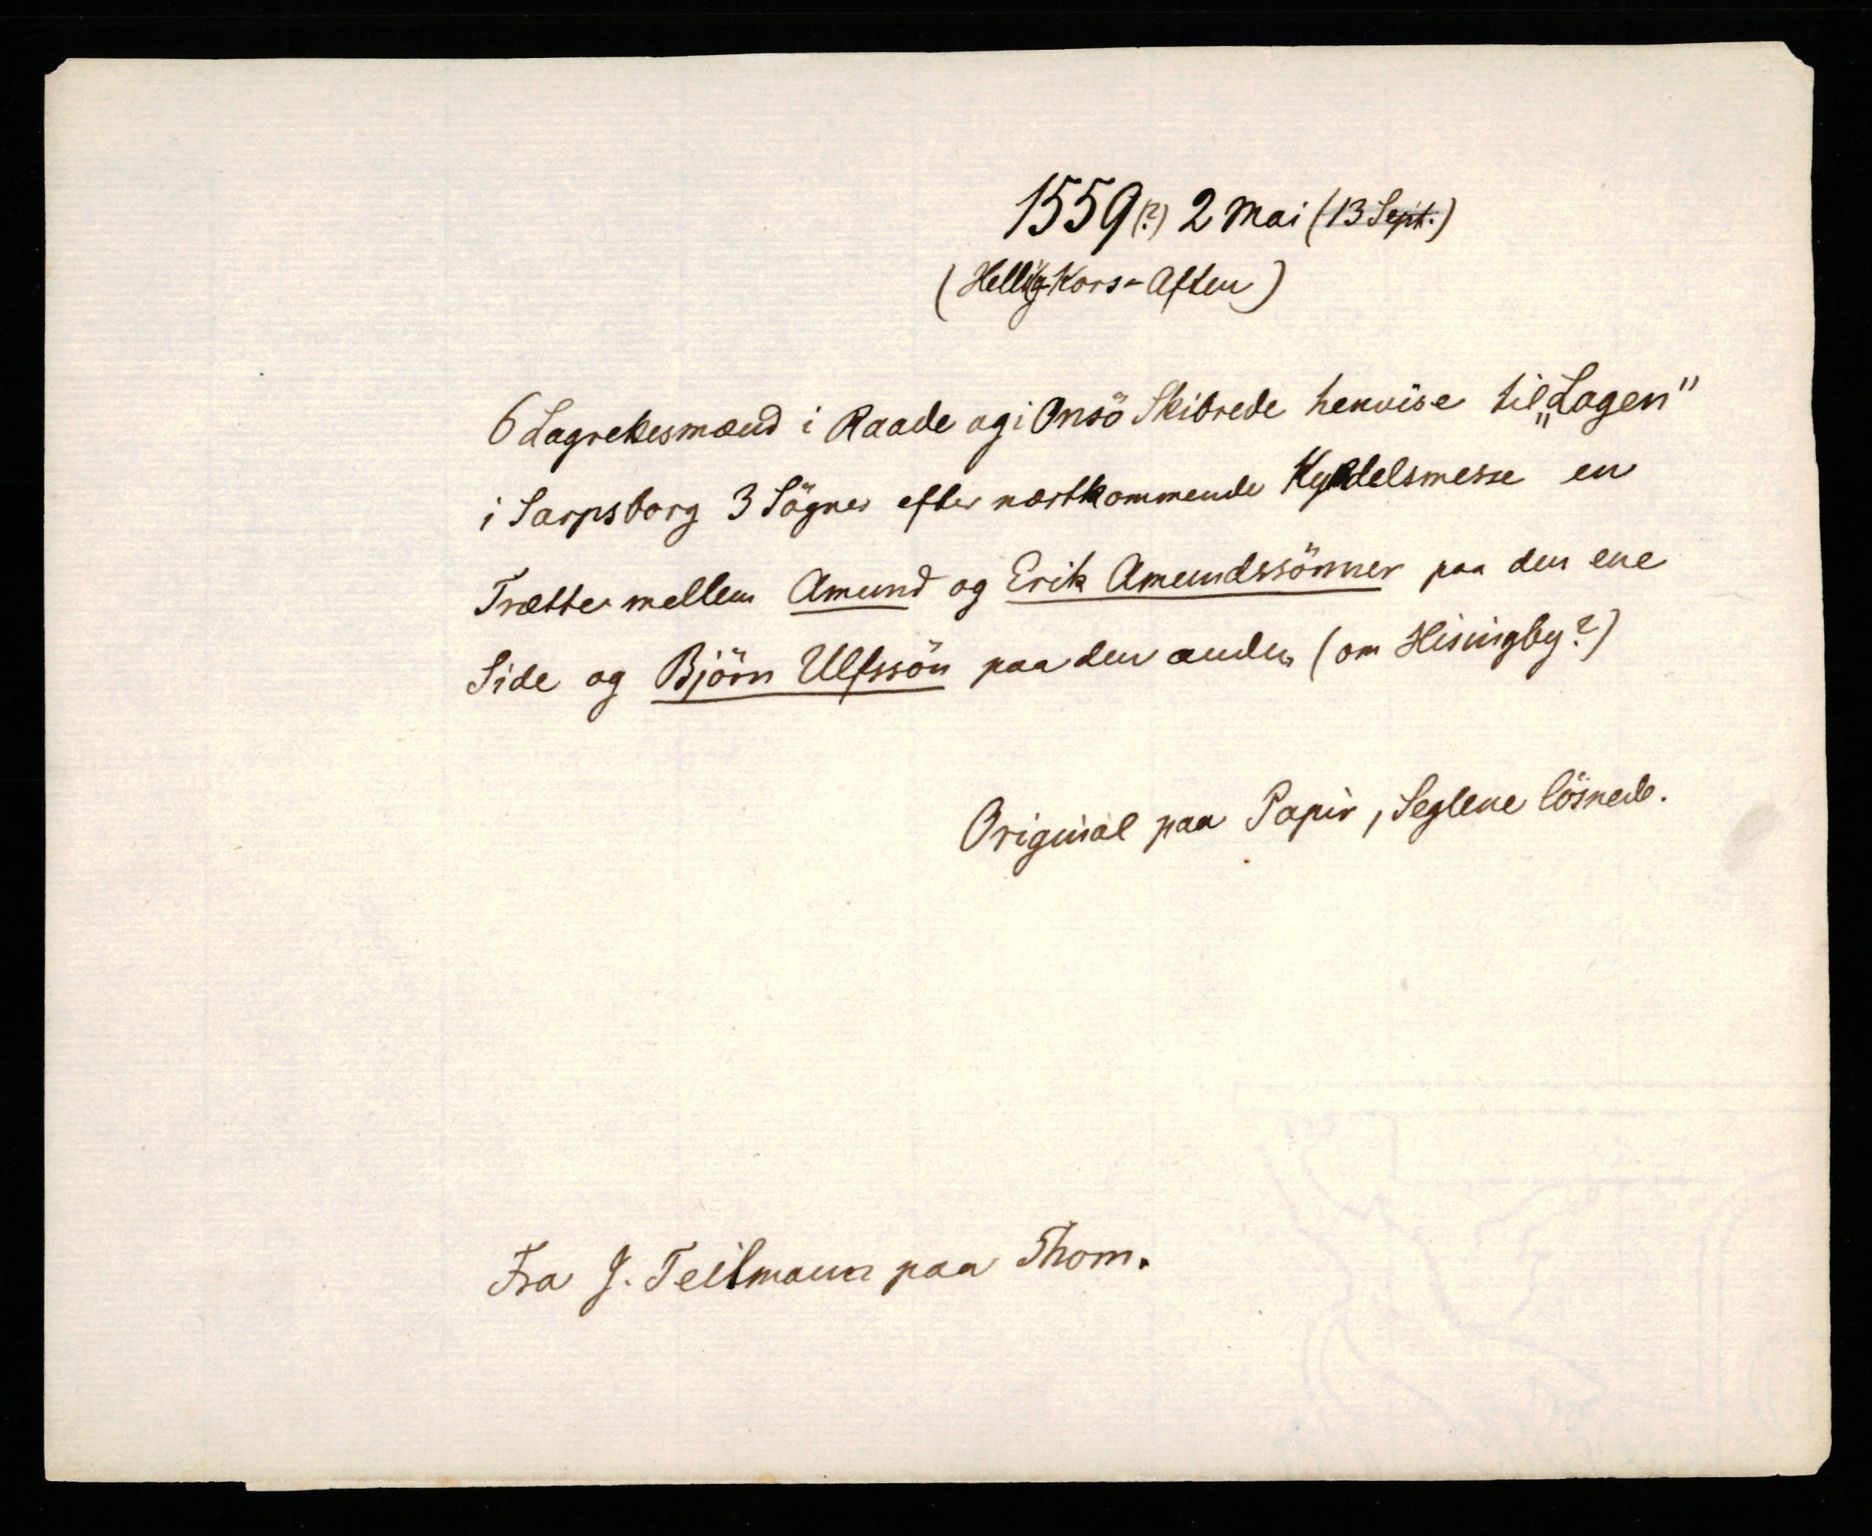 1559(?) 2 Mai (13 Sept.)
(Hellig Kors-Aften)
6 Lagrekesmænd i Raade og i Onsö Skibrede henvise til „Lagen"
i Sarpsborg 3 Sögner efter nærstkommende Kyndelsmesse en
Trætte mellem Amund og Erik Amundssönner paa den ene
Side og Björn Ulfssön paa den anden (om Hisingby?)
Original paa Papir, Seglene lösnede.
Fra J. Teilmann paa Thom.